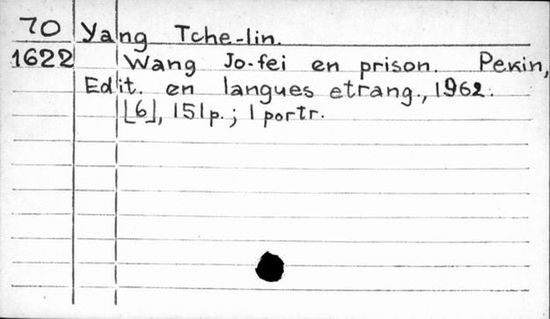 70 Yang Tche-lin.
1622 Wang Jo-fei en prison. Pekin,
Edit. en langues etrang., 1962.
[6], 151p.; 1 portr.